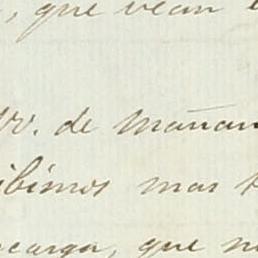 , que vean
de mañan
ibimos mas
ncarga, que n